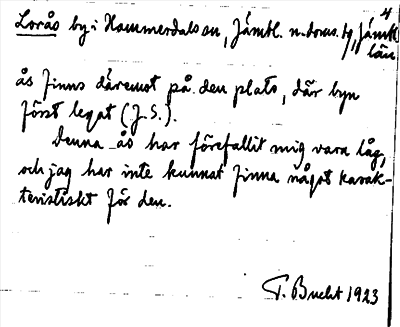 4
Lorås by i Hammerdals sn, Jämtl. n. doms. tg, Jämtl.
län
ås finns däremot på den plats, där byn
först legat (J.S.).
Denna ås har förefallit mig vara låg,
och jag har inte kunnat finna något karak-
teristiskt för den.
T. Bucht 1923